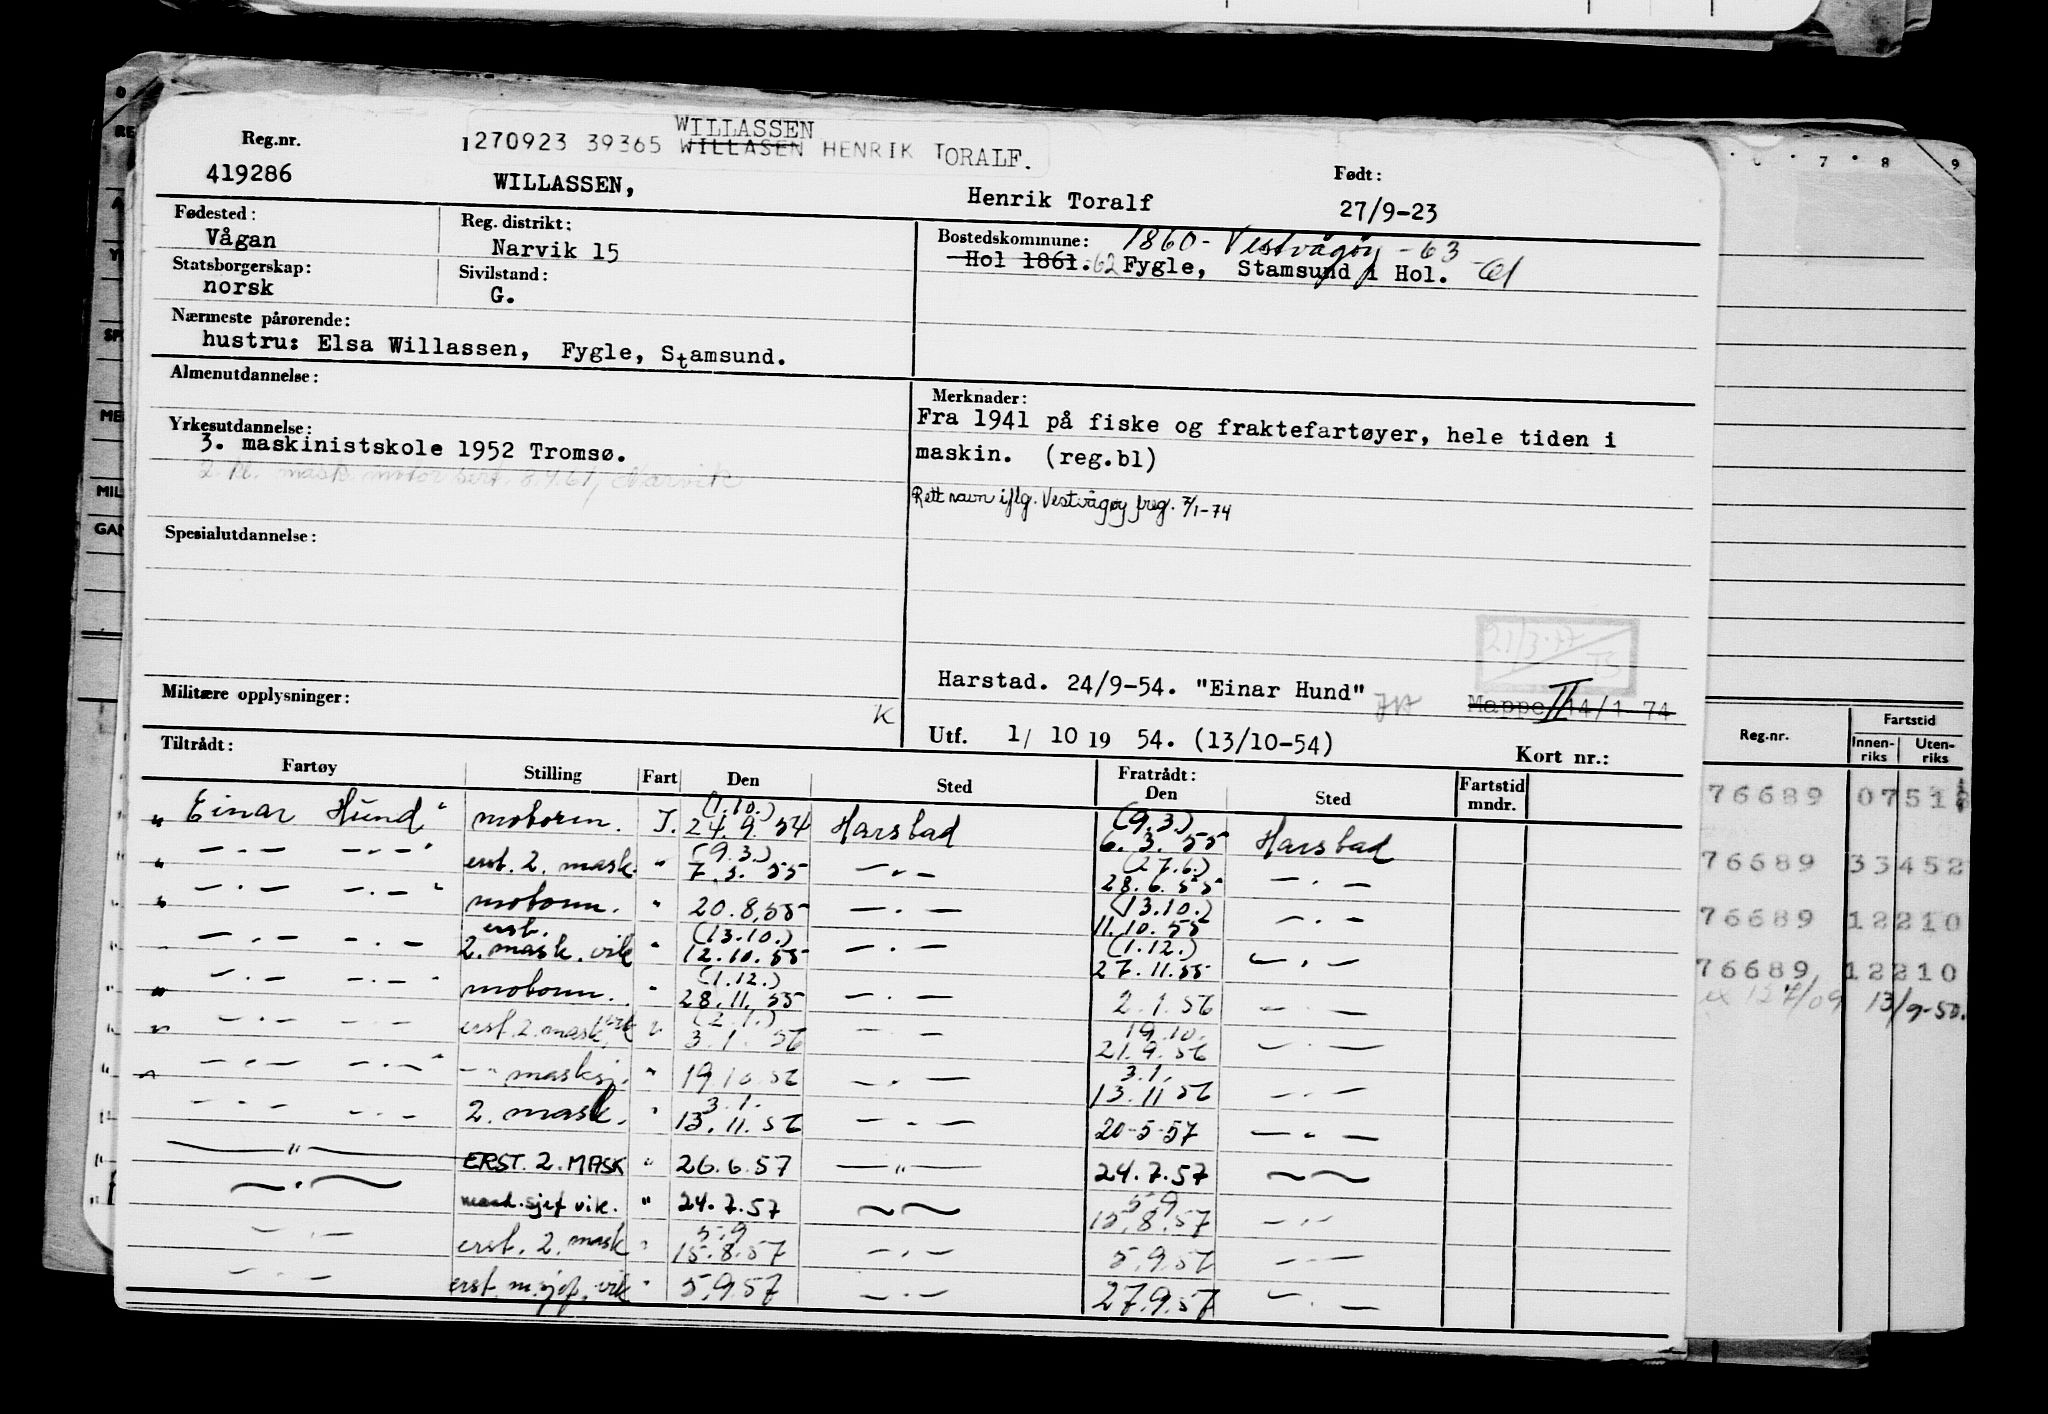 WILLASSEN
1270923 39365 WILLASEN HENRIK TORALF.
Reg.nr.
419286
WILLASSEN,
Henrik Toralf
Født:
27/9-23
Fødested:
Vågan
Reg. distrikt:
Narvik 15
Bostedskommune:
1860 - Vestvågøy - 63
Hol 1861.-62 Fygle, Stamsund i Hol. -61
Statsborgerskap:
norsk
Sivilstand:
G.
Nærmeste pårørende:
hustru: Elsa Willassen, Fygle, Stamsund.
Almenutdannelse:
Merknader:
Fra 1941 på fiske og fraktefartøyer, hele tiden i
maskin. (reg.bl)
Rett navn iflg. Vestvågøy freg. 7/1-74
Yrkesutdannelse:
3. maskinistskole 1952 Tromsø.
2. kl. mask. motor sert. 8.4.61, Narvik
Spesialutdannelse:
21/3-77
TS
Harstad. 24/9-54. "Einar Hund"
Mappe II 14/1-74
Militære opplysninger:
K
Utf. 1/10 19 54. (13/10-54)
Kort nr.:
Tiltrådt:
Fratrådt:
Fartøy Stilling Fart Den Sted Den Sted Fartstid mndr.
(1.10.) (9.3.)
" Einar Hund " motorm. I. 24.9.54 Harstad 6.3.55 Harstad
(9.3.) (27.6.)
" — . — — . — " erst. 2. mask. " 7.3.55 — . — 28.6.55 — . —
(13.10.)
" — . — — . — " motorm. " 20.8.55 — . — 11.10.55 — . —
erst. (13.10.) (1.12.)
— . — — . — 2. mask. vik " 12.10.55 — . — 27.11.55 — . —
(1.12.)
" — . — — . — " motorm. " 28.11.55 — . — 2.1.56 — . —
(2.1.) 19.10.
" — . — — . — erst. 2. mask. vik " 3.1.56 — . — 21.9.56 — . —
3.1.
" — . — — . — " — " masksj. " 19.10.56 — . — 13.11.56 — . —
3.1.
" — . — — . — 2. mask. " 13.11.56 — . — 20-5-57 — . —
— " — ERST. 2. MASK " 26.6.57 — " — 24.7.57 — —
5.9
— . — mask.sjef vik. " 24.7.57 — — 15.8.57 — . —
5.9
— . — erst. 2. mask " 15.8.57 — . — 5.9.57 — . —
— . — erst. m.sjef. vik " 5.9.57 — . — 27.9.57 — . —
7 8 9
Reg.nr.
Fartstid
Innen-riks
Uten-riks
76689 0751
76689 33452
76689 12210
76689 12210
13/9-50.